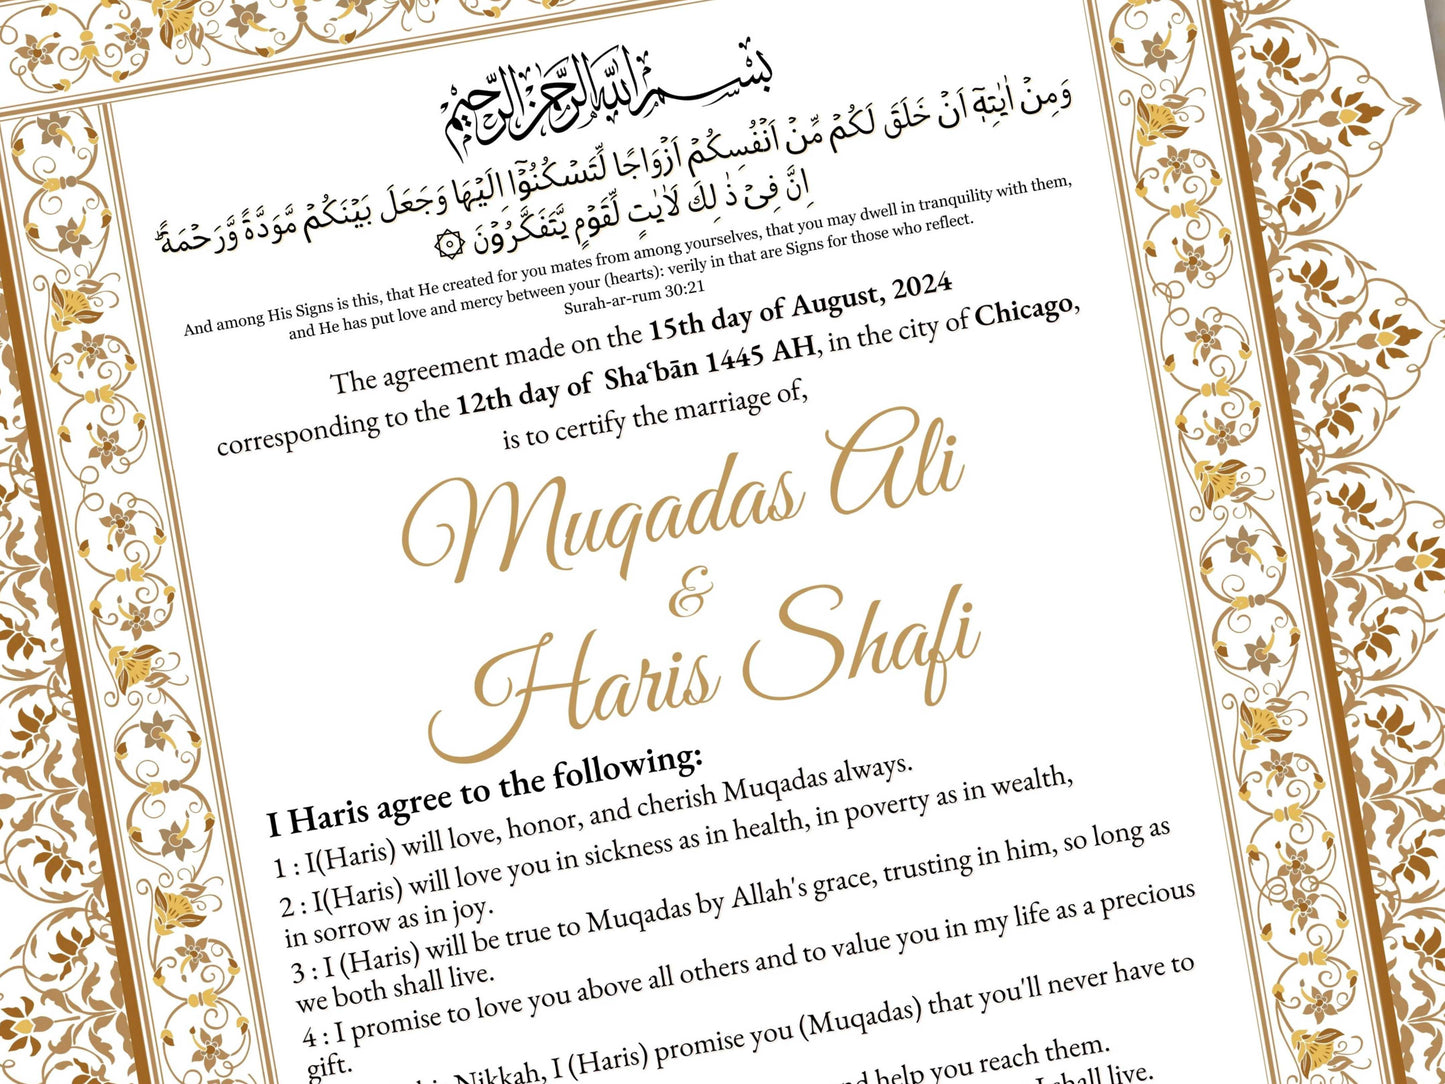 بسم الله الرحمن الرحيم
وَمِنْ اٰيٰتِهٖٓ اَنْ خَلَقَ لَكُمْ مِّنْ اَنْفُسِكُمْ اَزْوَاجًا لِّتَسْكُنُوْٓا اِلَيْهَا وَجَعَلَ بَيْنَكُمْ مَّوَدَّةً وَّرَحْمَةً ؕ
اِنَّ فِىْ ذٰ لِكَ لَاٰيٰتٍ لِّقَوْمٍ يَّتَفَكَّرُوْنَ
And among His Signs is this, that He created for you mates from among yourselves, that you may dwell in tranquility with them,
and He has put love and mercy between your (hearts): verily in that are Signs for those who reflect.
Surah-ar-rum 30:21
The agreement made on the 15th day of August, 2024
corresponding to the 12th day of Shaʿbān 1445 AH, in the city of Chicago,
is to certify the marriage of,
Muqadas Ali
&
Haris Shafi
I Haris agree to the following:
1 : I(Haris) will love, honor, and cherish Muqadas always.
2 : I(Haris) will love you in sickness as in health, in poverty as in wealth,
in sorrow as in joy.
3 : I (Haris) will be true to Muqadas by Allah's grace, trusting in him, so long as
we both shall live.
4 : I promise to love you above all others and to value you in my life as a precious
gift.
Nikkah, I (Haris) promise you (Muqadas) that you'll never have to
help you reach them.
shall live.